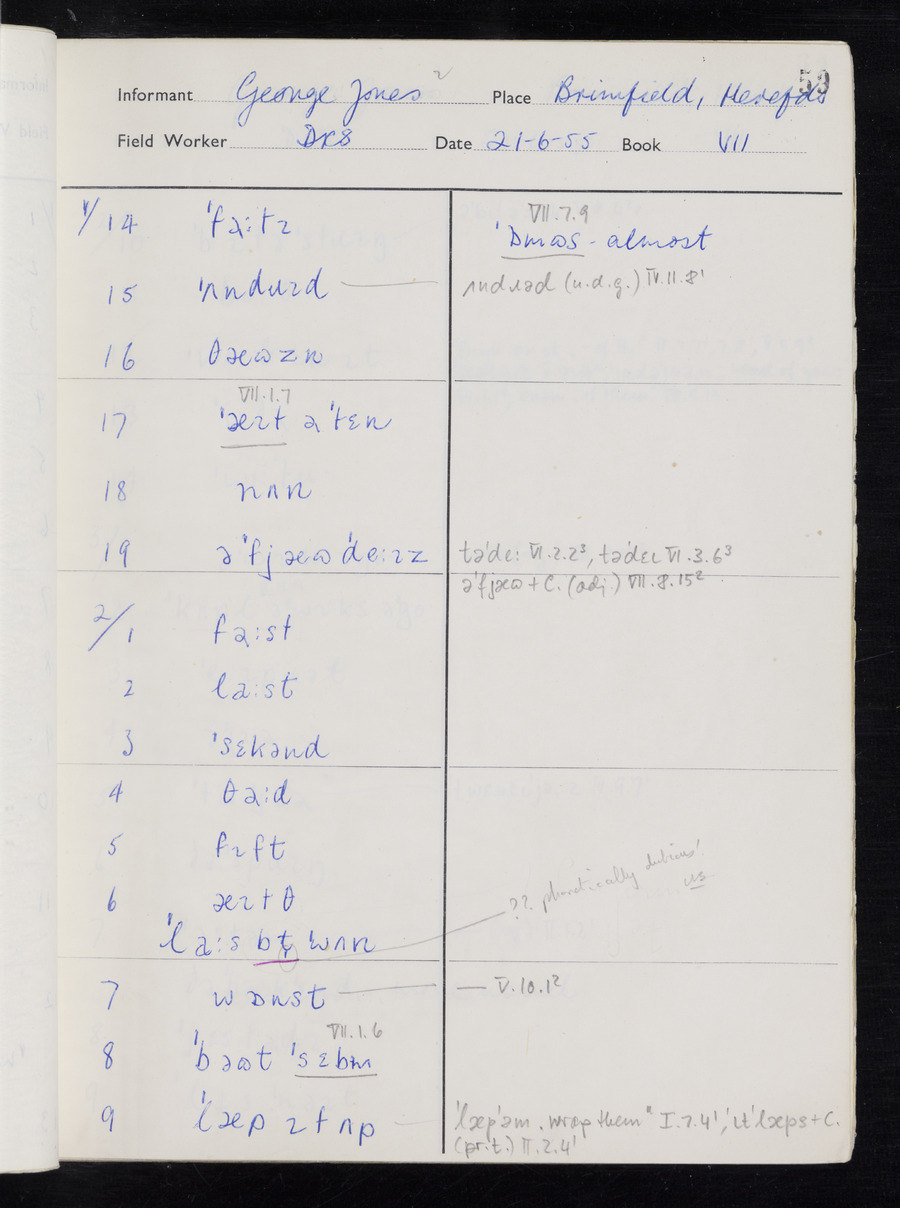 53
Informant George Jones 2 Place Brimfield, Herefds
Field Worker DRS Date 21-6-55 Book VII
1/14 ˈfəːtɪ
VII.7.9
ˈɒmɷs - almost
15 ˈʌndɹɪd
ʌndɹəd (u.d.g.) IV.11.8¹
16 θæɷzn
VII.1.7
17 ˈæɪt əˈtɛn
18 nʌn
19 əˈfjæɷˈdeːɪz
təˈdeː VI.2.2³, təˈdeɩ VI.3.6³
əˈfjæɷ + C. (adj.) VII.8.15²
2/1 fəːst
2 laːst
3 ˈsɛkənd
4 θəːd
5 fɪft
6 æɪtθ
?? phonetically dubious!
ˈlaːs bt ˈwʌn
7 wɒnst
— V.10.1²
VII.1.6
8 ˈbəɷt ˈsɛbm
9 ˈlæp ɪt ʌp
ˈlæpˈəm "wrap them" I.7.4¹, ɩtˈlæps + C.
(pr.t.) II.2.4¹